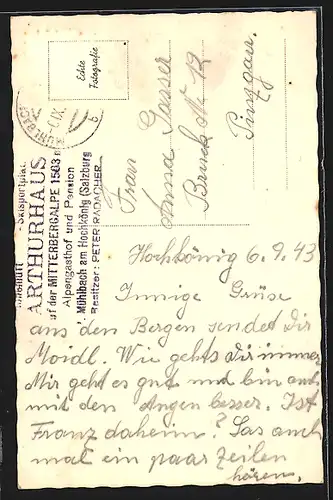 Echte
Fotografie
Skisportplatz
ARTHURHAUS
auf der MITTERBERGALPE 1503 m
Alpengasthof und Pension
Mühlbach am Hochkönig (Salzburg
Besitzer: PETER RADACHER
Frau
Anna Gasser
Bruck No 12
Pinzgau.
Hochkönig 6.9.43
Innige Grüse
aus den Bergen sendet Dir
Moidl. Wie gehts Dir immer
Mir geht es gut und bin auch
mit den Augen besser. Ist
Franz daheim? Las auch
mal ein paar Zeilen
hören.